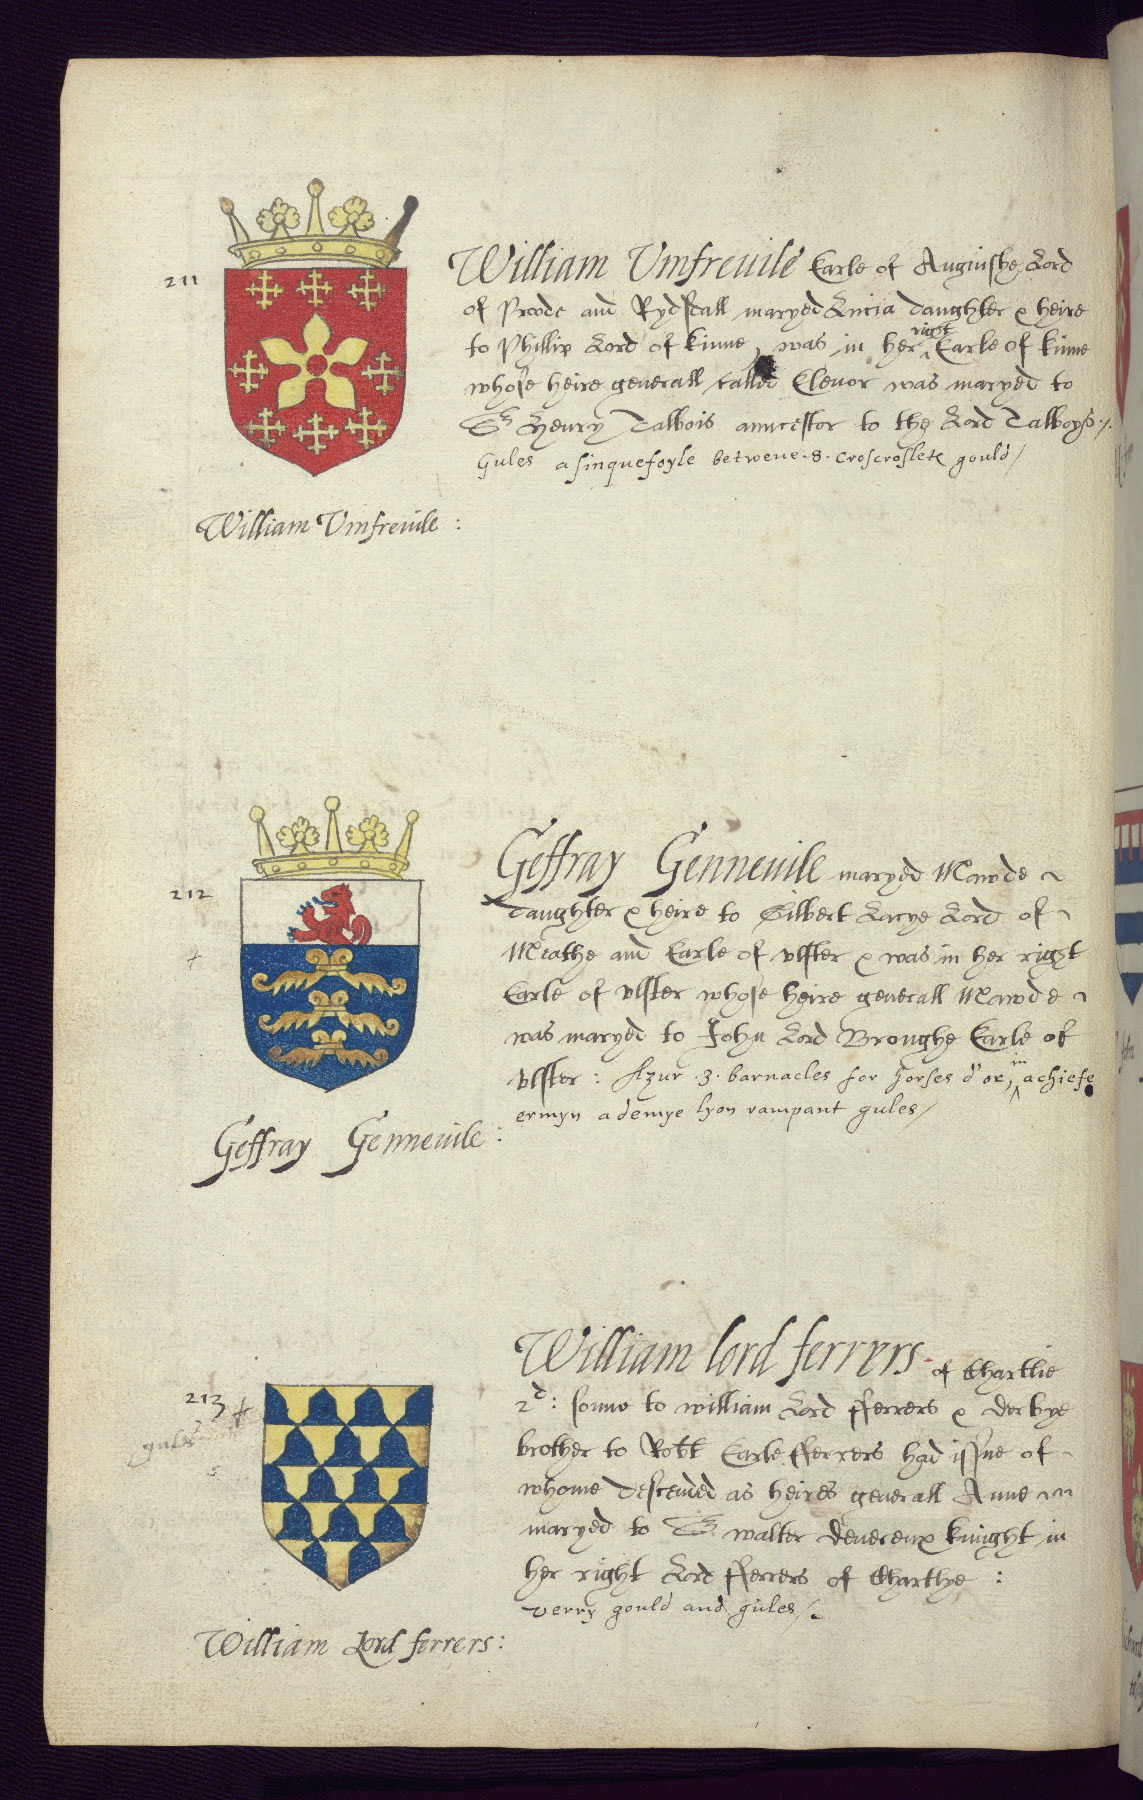 211
William Vmfreuile Earle of Anguishe, Lord
of Proode and Rydsdall maryed Lucia daughter & heire
to Phillip Lord of Kinne, was in her right Earle of Kime
whose heire generall called Elenor was maryed to
Sr Henry Talbois anncestor to the Lord Talboys ./.
Gules a sinquefoyle betwene .8. croscroslete gould/
William Vmfreuile :
212
Geffray Genneuile maryed Mawde
daughter & heire to Gilbert Lacye Lord of
Meathe and Earle of Vlster & was in her right
Earle of Vlster whose heire generall Mawde
was maryed to John Lord Broughe Earle of
Vlster : Azur .3. barnacles for horses d'or, in a chiefe
ermyn a demye lyon rampant gules/
Geffray Genneuile :
213
gules
William lord ferrers of Chartlie
2d: sonne to william Lord fferrers & Derbye
brother to Robt Earle fferrers had issue of
whome descended as heires generall Anne
maryed to Sr walter Devereux knight in
her right Lord fferrers of Chartlye :
verry gould and gules/.
William Lord ferrers :